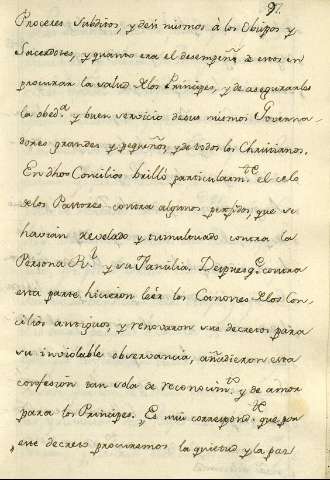 9.
Proceres Subditos, y de sí mismos à los Obispos y
Sacerdotes, y quanto era el desempeñ.º de estos en
procurar la salud de los Principes, y de asegurarles
la obed.ª y buen servicio de sus mismos Governa-
dores grandes y pequeños, y de todos los Christianos.
En dhos Concilios brilló particularm.te el celo
de los Pastores contra algunos perfidos, que se
havian revelado y tumultuado contra la
Persona R.l y su Familia. Despues q.e contra
esta parte hicieron leér los Canones de los Con-
cilios antiguos, y renovaron sus decretos para
su inviolable observancia, añadieron esta
confesion tan sola de reconocim.to y de amor
para los Principes. "Es mui correspond.te que por
"este decreto procuremos la quietud y la paz